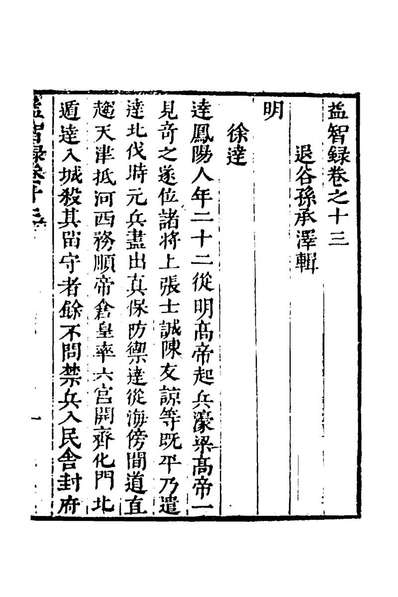 益智録卷之十三
退谷孫承澤輯
明
徐達
達鳳陽人年二十二從明髙帝起兵濠梁髙帝一
見奇之遂位諸將上張士誠陳友諒等既平乃遣
達北伐時元兵盡出真保防禦達從海傍間道直
趍天津抵河西務順帝倉皇率六宫開齊化門北
遁達入城殺其畱守者餘不問禁兵入民舍封府
益智録卷之十三
一